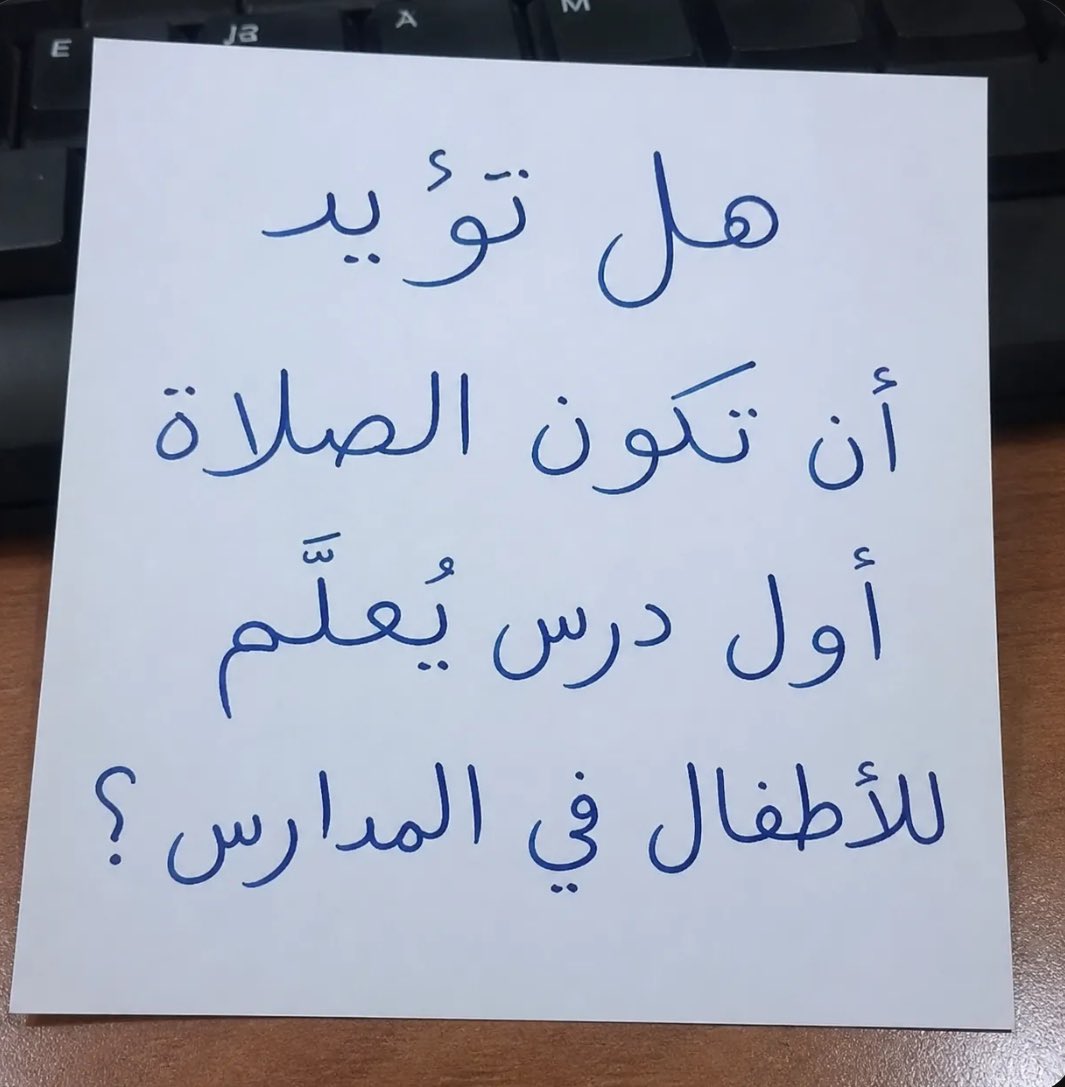 E JB A M
هل تؤيد
أن تكون الصلاة
أول درس يُعلَّم
للأطفال في المدارس ؟